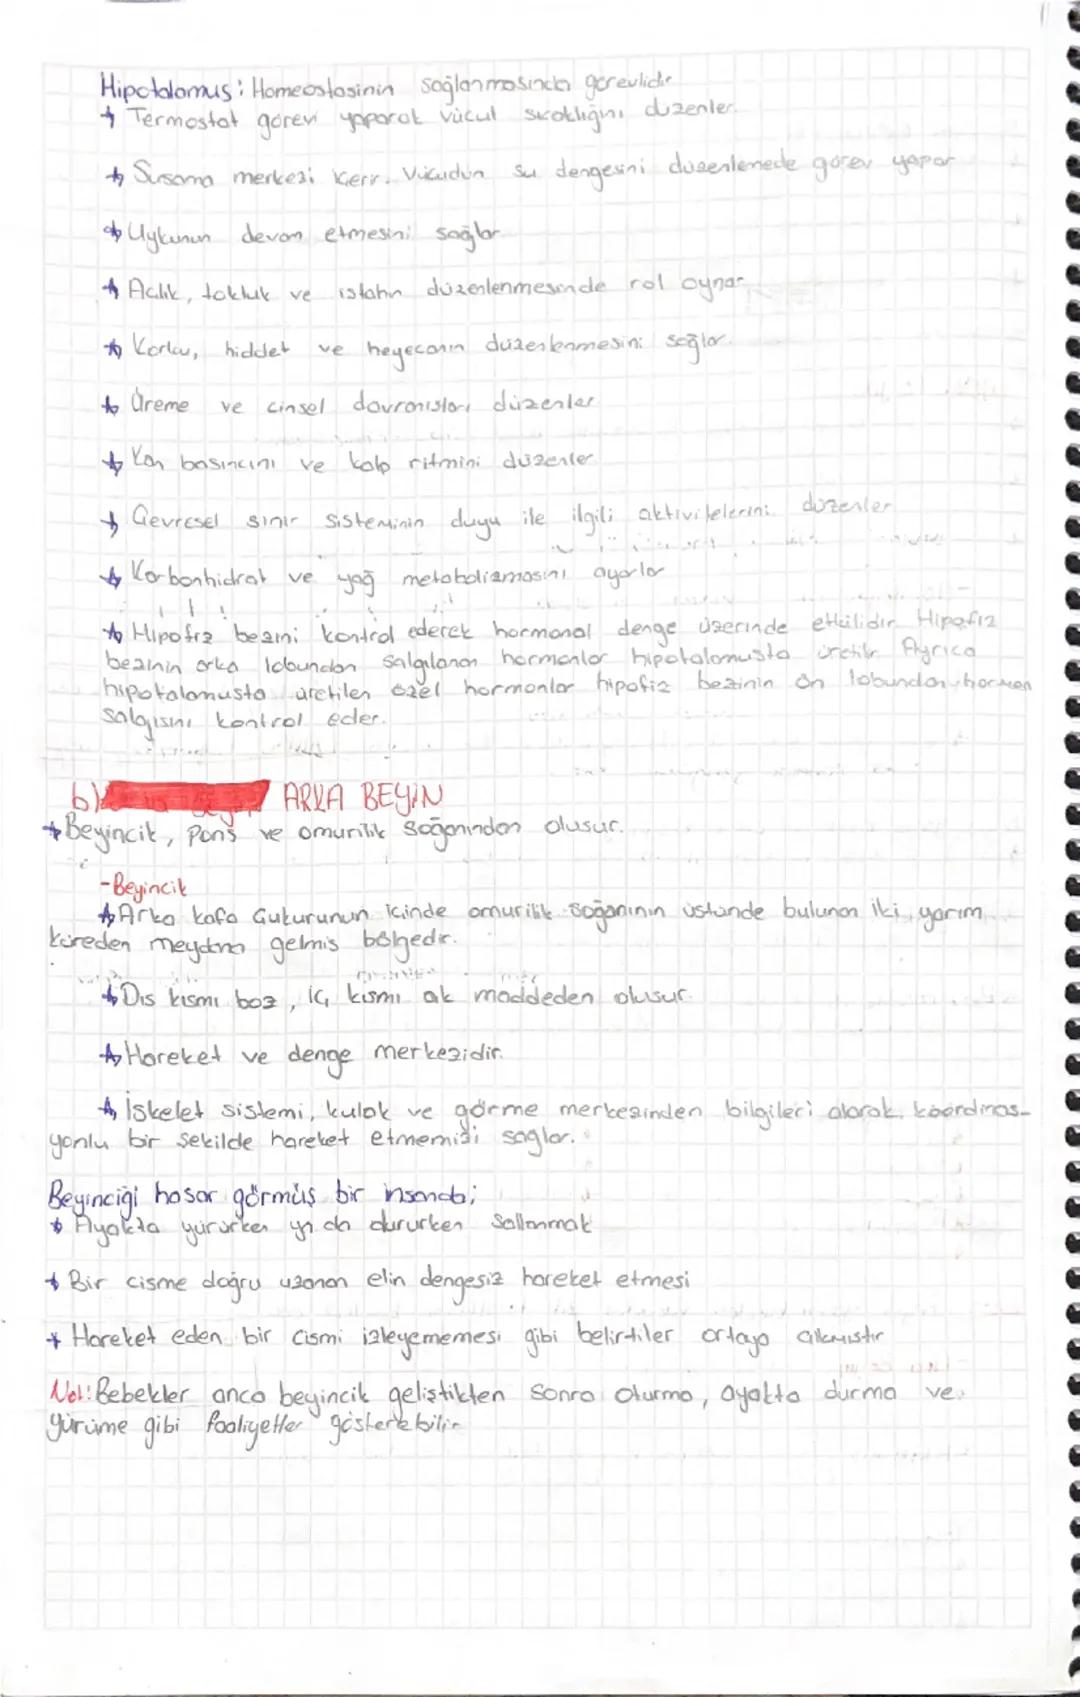 Hipotalamus: Homeostasinin sağlanmasında görevlidir
Termostat görevi yaparak vücut sıcaklığını düzenler.
Susama merkezi içerir. Vücudun su dengesini düzenlemede görev yapar
Uykunun devam etmesini sağlar
Açlık, tokluk ve iştahın düzenlenmesinde rol oynar
Korku, hiddet ve heyecanın düzenlenmesini sağlar.
Üreme ve cinsel davranışları düzenler
Kan basıncını ve kalp ritmini düzenler
Çevresel sinir sisteminin duyu ile ilgili aktivitelerini düzenler
Karbonhidrat ve yağ metabolizmasını ayarlar
Hipofiz bezini kontrol ederek hormonal denge üzerinde etkilidir. Hipofiz
bezinin arka lobundan salgılanan hormonlar hipotalamusta üretilir Ayrıca
hipotalamusta üretilen özel hormonlar hipofiz bezinin ön lobundan hormon
salgısını kontrol eder.
b) ARKA BEYİN
Beyincik, pons ve omurilik soğanından oluşur.
-Beyincik
Arka kafa çukurunun içinde omurilik soğanının üstünde bulunan iki yarım
küreden meydana gelmiş bölgedir.
Dış kısmı boz, iç kısmı ak maddeden oluşur.
Hareket ve denge merkezidir.
İskelet sistemi, kulak ve görme merkezinden bilgileri alarak, koordinas-
yonlu bir şekilde hareket etmemizi sağlar.
Beyinciği hasar görmüş bir insanda;
Ayakta yürürken ya da dururken sallanmak
Bir cisme doğru uzanan elin dengesiz hareket etmesi
Hareket eden bir cismi izleyememesi gibi belirtiler ortaya çıkmıştır
Not: Bebekler anca beyincik geliştikten sonra oturma, ayakta durma ve
yürüme gibi faaliyetler gösterebilir